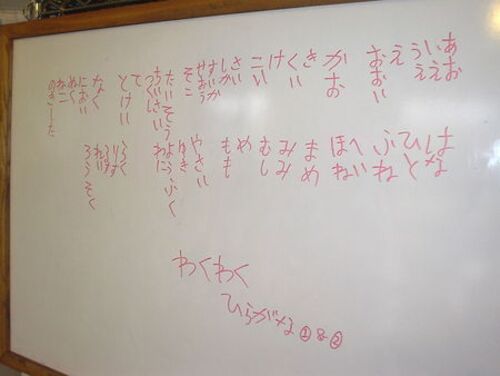 あお
いえ
うえ
え
おおい
かお
き
くい
け
こい
さい
しかい
すいか
せおう
そこ
たいそう
ちいさい
て
とけい
なく
におい
ぬく
ねこ
のきした
はな
ひと
ふね
へい
ほね
まめ
みみ
むし
め
もも
やさい
ゆき
ようふく
わに
らく
りす
ろうそく
わくわく
ひらがな①&②